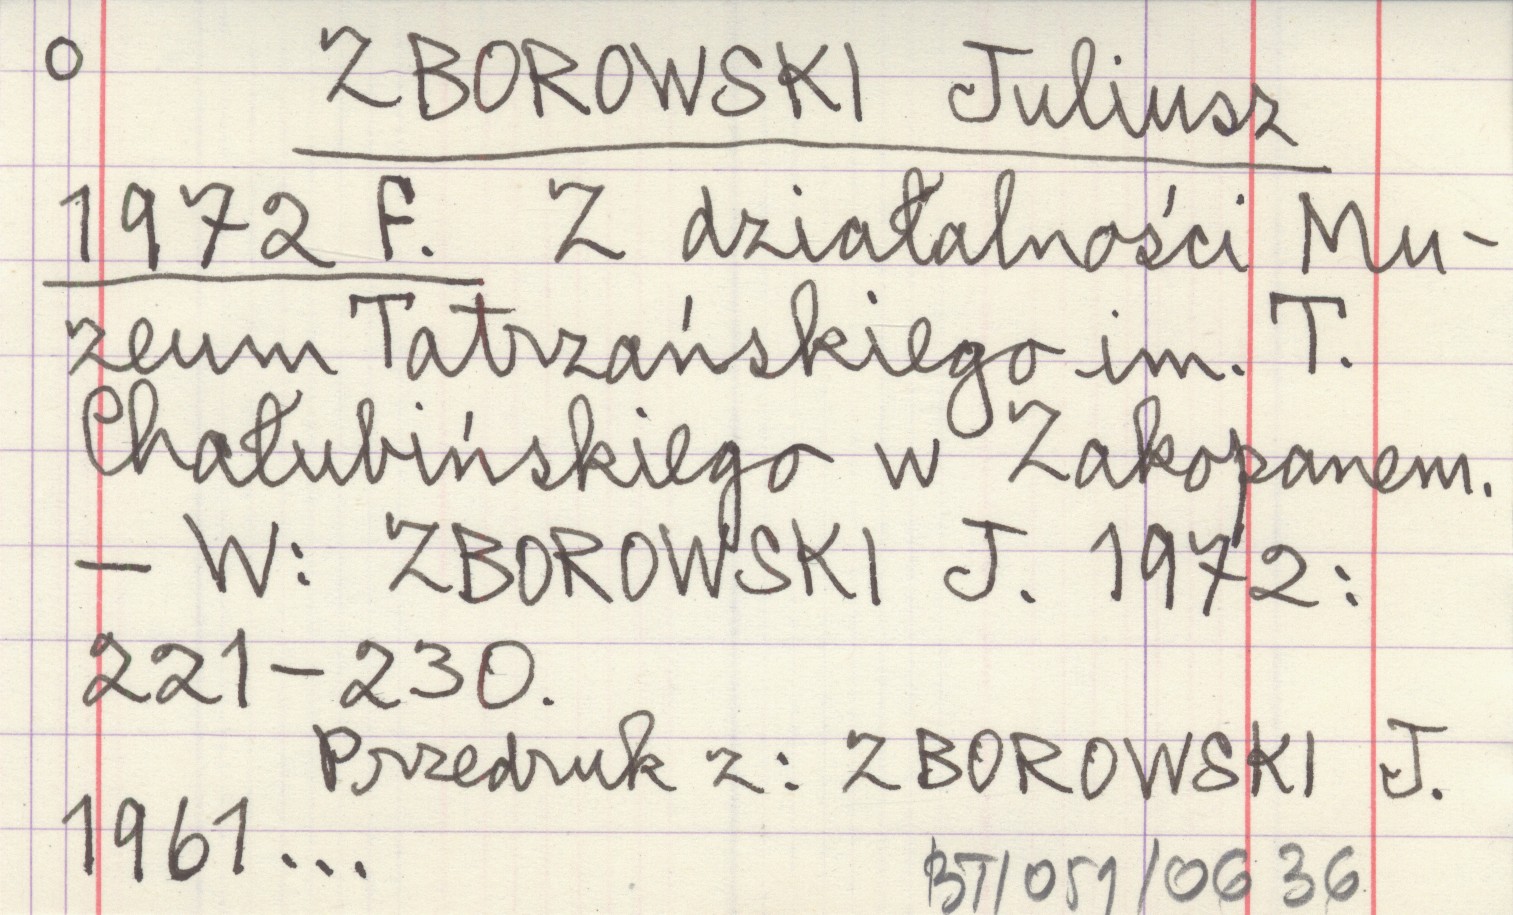 o ZBOROWSKI Juliusz
1972 F. Z działalności Mu-
zeum Tatrzańskiego im. T.
Chałubińskiego w Zakopanem.
— W: ZBOROWSKI J. 1972:
221-230.
Przedruk z: ZBOROWSKI J.
1961...
BT/051/0636